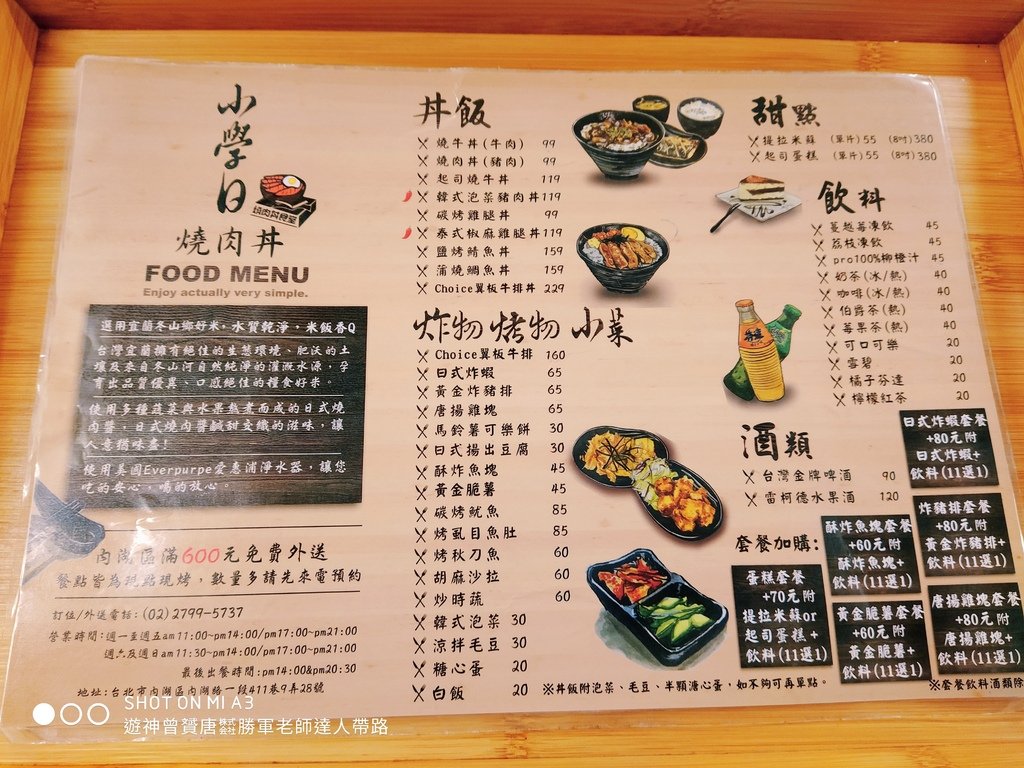 小學日
燒肉丼
FOOD MENU
Enjoy actually very simple.
燒肉丼食堂
選用宜蘭冬山鄉好米,水質乾淨,米飯香Q
台灣宜蘭擁有絕佳的生態環境、肥沃的土
壤及來自冬山河自然純淨的灌溉水源,孕
育出品質優異、口感絕佳的糧食好米。
使用多種蔬菜與水果熬煮而成的日式燒
肉醬,日式燒肉醬鹹甜交織的滋味,讓
人意猶味盡!
使用美國Everpurpe愛惠浦淨水器,讓您
吃的安心、喝的放心。
內湖區滿600元免費外送
餐點皆為現點現烤,數量多請先來電預約
訂位/外送電話:(02)2799-5737
營業時間:週一至週五am11:00~pm14:00/pm17:00~pm21:00
週六及週日am11:30~pm14:00/pm17:00~pm21:00
最後出餐時間:pm14:00&pm20:30
地址:台北市內湖區內湖路一段411巷9弄28號
丼飯
燒牛丼(牛肉) 99
燒肉丼(豬肉) 99
起司燒牛丼 119
韓式泡菜豬肉丼 119
碳烤雞腿丼 99
泰式椒麻雞腿丼 119
鹽烤鯖魚丼 159
蒲燒鯛魚丼 159
Choice翼板牛排丼 229
炸物 烤物 小菜
Choice翼板牛排 160
日式炸蝦 65
黃金炸豬排 65
唐揚雞塊 65
馬鈴薯可樂餅 30
日式揚出豆腐 30
酥炸魚塊 45
黃金脆薯 45
碳烤魷魚 85
烤虱目魚肚 85
烤秋刀魚 60
胡麻沙拉 60
炒時蔬 60
韓式泡菜 30
涼拌毛豆 30
糖心蛋 20
白飯 20
※丼飯附泡菜、毛豆、半顆溏心蛋,如不夠可再單點。
甜點
提拉米蘇 (單片)55 (8吋)380
起司蛋糕 (單片)55 (8吋)380
飲料
蔓越莓凍飲 45
荔枝凍飲 45
pro100%柳橙汁 45
奶茶(冰/熱) 40
咖啡(冰/熱) 40
伯爵茶(熱) 40
莓果茶(熱) 40
可口可樂 20
雪碧 20
橘子芬達 20
檸檬紅茶 20
酒類
台灣金牌啤酒 90
雷柯德水果酒 120
套餐加購:
蛋糕套餐
+70元 附
提拉米蘇or
起司蛋糕+
飲料(11選1)
酥炸魚塊套餐
+60元 附
酥炸魚塊+
飲料(11選1)
黃金脆薯套餐
+60元 附
黃金脆薯+
飲料(11選1)
日式炸蝦套餐
+80元 附
日式炸蝦+
飲料(11選1)
炸豬排套餐
+80元 附
黃金炸豬排+
飲料(11選1)
唐揚雞塊套餐
+80元 附
唐揚雞塊+
飲料(11選1)
※套餐飲料酒類除
SHOT ON MI A3
遊神曾贊唐勝軍老師達人帶路